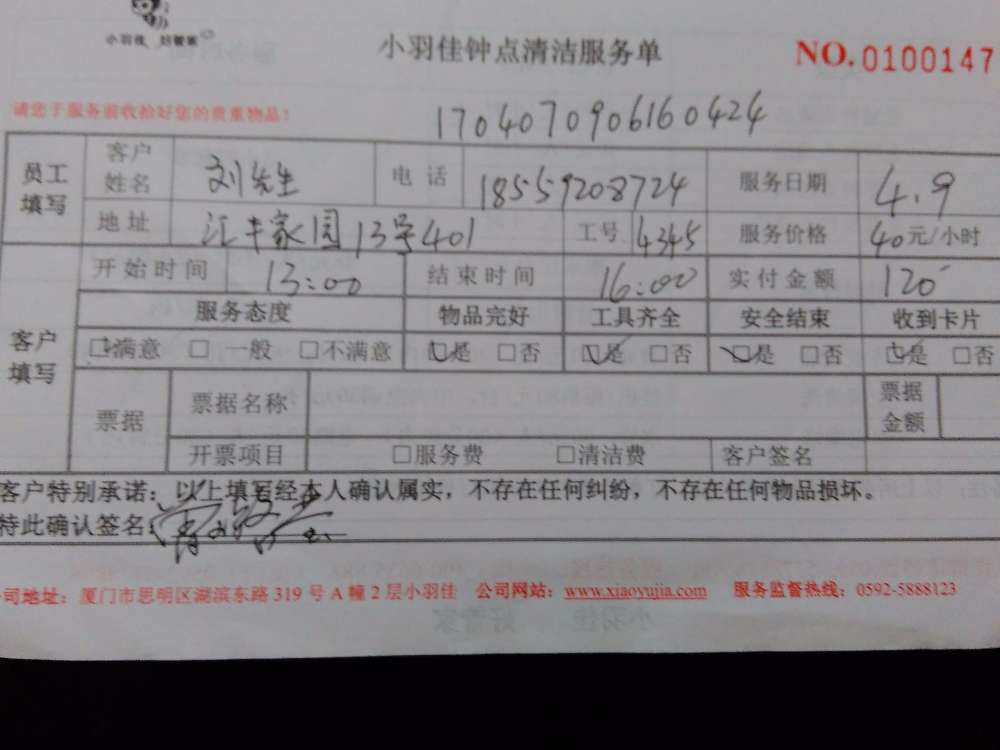 小羽佳 好管家
小羽佳钟点清洁服务单
NO.0100147
请您于服务前收拾好您的贵重物品!
1704070906160424
员工填写 客户姓名 刘先生 电话 18559208724 服务日期 4.9
地址 汇丰家园13号401 工号 4345 服务价格 40元/小时
客户填写 开始时间 13:00 结束时间 16:00 实付金额 120
服务态度 物品完好 工具齐全 安全结束 收到卡片
☑满意 □一般 □不满意 ☑是 □否 ☑是 □否 ☑是 □否 ☑是 □否
票据 票据名称 票据金额
开票项目 □服务费 □清洁费 客户签名
客户特别承诺：以上填写经本人确认属实，不存在任何纠纷，不存在任何物品损坏。
特此确认签名:
公司地址：厦门市思明区湖滨东路 319 号 A 幢 2 层小羽佳 公司网站：www.xiaoyujia.com 服务监督热线：0592-5888123